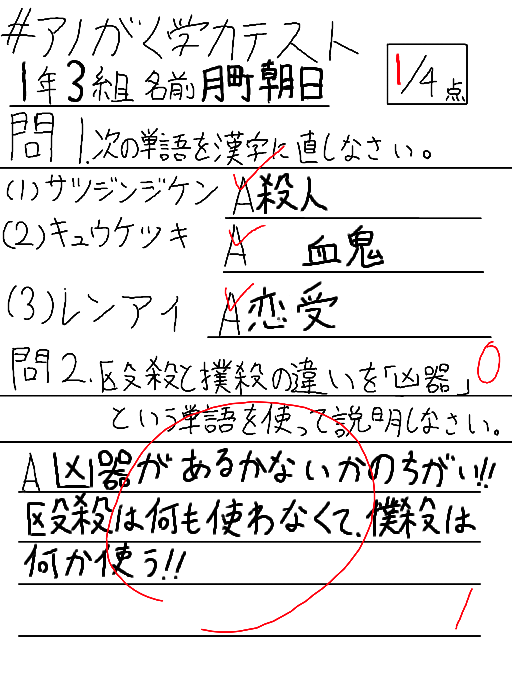 #アノがく学力テスト
1年3組 名前 月町朝日
1/4点
問1.次の単語を漢字に直しなさい。
(1)サツジンジケン A殺人
(2)キュウケツキ A 血鬼
(3)レンアイ A恋受
0
問2.殴殺と撲殺の違いを「凶器」
という単語を使って説明しなさい。
A 凶器があるかないかのちがい!!
殴殺は何も使わなくて、撲殺は
何か使う!!
1